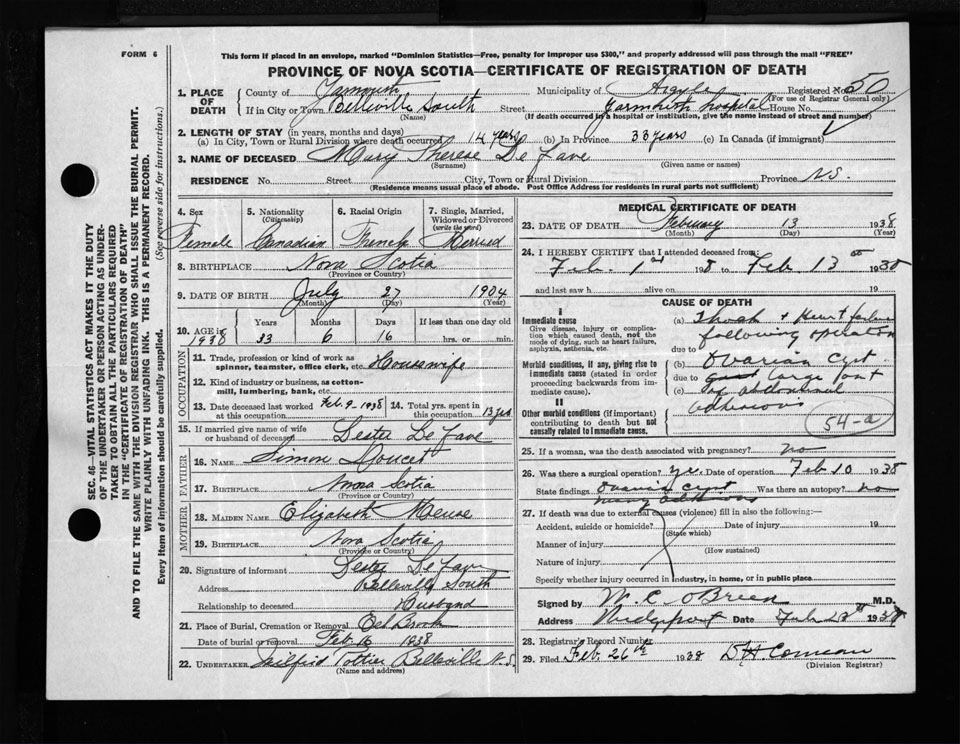 FORM 6
This form if placed in an envelope, marked "Dominion Statistics—Free, penalty for improper use $300," and properly addressed will pass through the mail "FREE"
PROVINCE OF NOVA SCOTIA—CERTIFICATE OF REGISTRATION OF DEATH
SEC. 46—VITAL STATISTICS ACT MAKES IT THE DUTY
OF THE UNDERTAKER OR PERSON ACTING AS UNDER-
TAKER TO OBTAIN ALL THE PARTICULARS REQUIRED
IN THE "CERTIFICATE OF REGISTRATION OF DEATH"
AND TO FILE THE SAME WITH THE DIVISION REGISTRAR WHO SHALL ISSUE THE BURIAL PERMIT.
WRITE PLAINLY WITH UNFADING INK. THIS IS A PERMANENT RECORD.
Every item of information should be carefully supplied. (See reverse side for instructions.)
1. PLACE OF DEATH County of Yarmouth Municipality of Argyle Registered No. 50
(For use of Registrar General only)
If in City or Town Belleville South Street Yarmouth Hospital House No.
(Name) (If death occurred in a hospital or institution, give the name instead of street and number)
2. LENGTH OF STAY (in years, months and days)
(a) In City, Town or Rural Division where death occurred 14 years (b) In Province 33 years (c) In Canada (if immigrant)
3. NAME OF DECEASED Mary Therese De Fave
(Surname) (Given name or names)
RESIDENCE No. Street City, Town or Rural Division Province N.S.
(Residence means usual place of abode. Post Office Address for residents in rural parts not sufficient)
4. Sex Female
5. Nationality (Citizenship) Canadian
6. Racial Origin French
7. Single, Married, Widowed or Divorced (write the word) Married
8. BIRTHPLACE Nova Scotia
(Province or Country)
9. DATE OF BIRTH July 27 1904
(Month) (Day) (Year)
10. AGE in 1938 Years 33 Months 6 Days 16 If less than one day hrs. or min.
OCCUPATION
11. Trade, profession or kind of work as spinner, teamster, office clerk, etc. Housewife
12. Kind of industry or business, as cotton-mill, lumbering, bank, etc.
13. Date deceased last worked at this occupation Feb. 9 - 1938 14. Total yrs. spent in this occupation 13 yrs
15. If married give name of wife or husband of deceased Lester De Fave
FATHER
16. NAME Simon Doucet
17. BIRTHPLACE Nova Scotia
(Province or Country)
MOTHER
18. MAIDEN NAME Elizabeth Meuse
19. BIRTHPLACE Nova Scotia
(Province or Country)
20. Signature of informant Lester De Fave
Address Belleville South
Relationship to deceased Husband
21. Place of Burial, Cremation or Removal Eel Brook
Date of burial or removal Feb. 16 1938
22. UNDERTAKER Wilfrid Pottier Belleville N.S.
(Name and address)
MEDICAL CERTIFICATE OF DEATH
23. DATE OF DEATH February 13 1938
(Month) (Day) (Year)
24. I HEREBY CERTIFY that I attended deceased from:
Feb. 1st 1938 to Feb 13th 1938
and last saw h alive on 19
CAUSE OF DEATH
I
Immediate cause
Give disease, injury or complication which caused death, not the mode of dying, such as heart failure, asphyxia, asthenia, etc.
(a) Shock & Heart failure
following operation
due to
Morbid conditions, if any, giving rise to immediate cause (stated in order proceeding backwards from immediate cause).
(b) Ovarian Cyst
due to large part
(c) of abdominal
adhesions
II
Other morbid conditions (if important) contributing to death but not causally related to immediate cause.
54-a
25. If a woman, was the death associated with pregnancy? no
26. Was there a surgical operation? yes Date of operation Feb 10 1938
State findings Ovarian Cyst Was there an autopsy? no
many adhesions
27. If death was due to external causes (violence) fill in also the following:—
Accident, suicide or homicide? Date of injury 19
(State which)
Manner of injury
(How sustained)
Nature of injury
Specify whether injury occurred in industry, in home, or in public place
Signed by W. C. O'Brien M.D.
Address Wedgeport Date Feb 1938
28. Registrar's Record Number
29. Filed Feb. 26th 1938 D.H. Comeau
(Division Registrar)